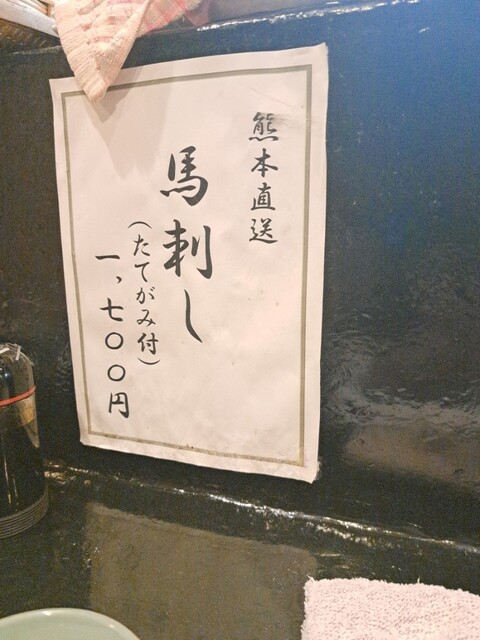 熊本直送
馬刺し
(たてがみ付)
一、七〇〇円